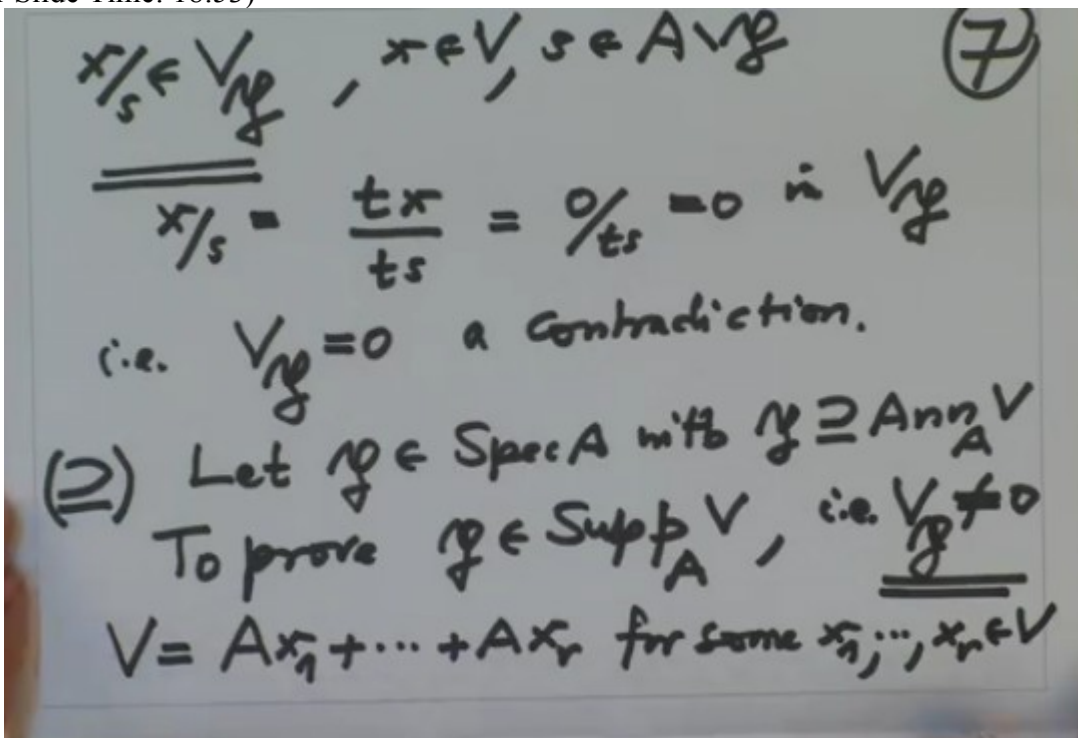 Slide Time: 16:55)
x/s ∈ V_𝔭 , x ∈ V, s ∈ A∖𝔭 ⑦
x/s = tx/ts = 0/ts = 0 in V_𝔭
i.e. V_𝔭 = 0 a contradiction.
(⊇) Let 𝔭 ∈ Spec A with 𝔭 ⊇ Ann_A V
To prove 𝔭 ∈ Supp_A V, i.e. V_𝔭 ≠ 0
V = Ax_1 + ⋯ + Ax_r for some x_1, ⋯, x_r ∈ V